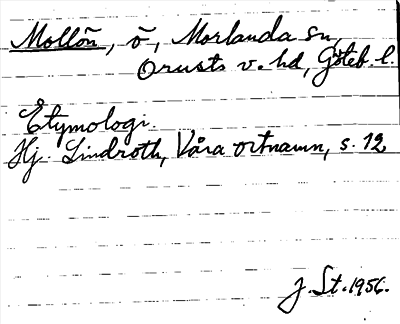 Mollön, ö, Morlanda sn,
Orusts v. hd, Göteb. l.
Etymologi.
Hj. Lindroth, Våra ortnamn, s. 12.
J. St. 1956.